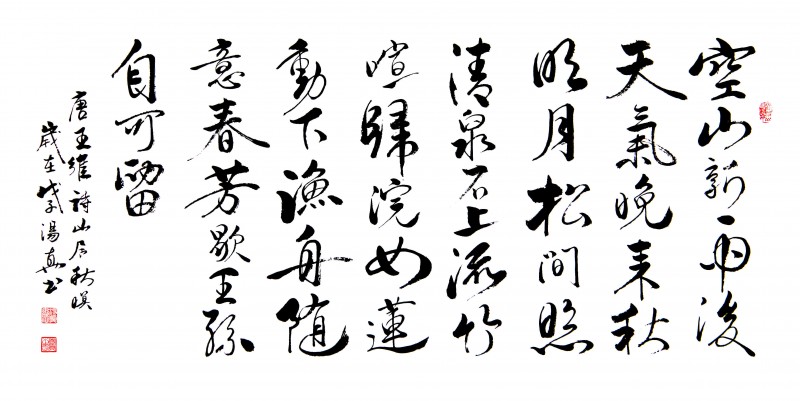 空山新雨後
天氣晚来秋
明月松間照
清泉石上流竹
喧歸浣女蓮
動下漁舟随
意春芳歇王孫
自可留
唐王維詩山居秋暝
歲在戊子湯真书